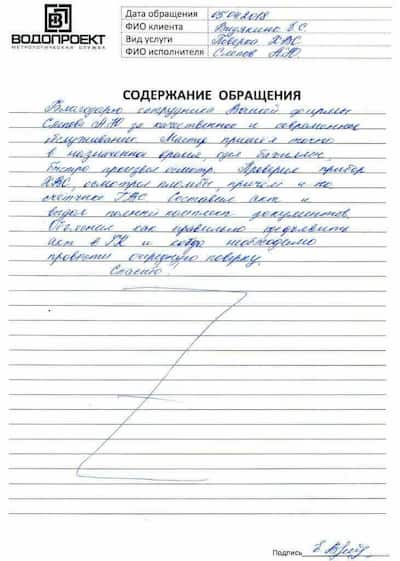 ВОДОПРОЕКТ
МЕТРОЛОГИЧЕСКАЯ СЛУЖБА
Дата обращения 05.04.2018
ФИО клиента Е.С.
Вид услуги Поверка ХВС
ФИО исполнителя Слепов А.Ю.
СОДЕРЖАНИЕ ОБРАЩЕНИЯ
Благодарю сотрудника Вашей фирмы
Слепова А.Ю за качественное и
обслуживание. Мастер пришел точно
в назначенное время,
быстро произвел осмотр. Проверил прибор
ХВС, осмотрел пломбы, причем и на
счетчике ГВС. Составил акт и
выдал полный комплект документов.
Объяснил как правильно предъявить
акт в УК и когда необходимо
провести очередную поверку.
Спасибо!
Подпись